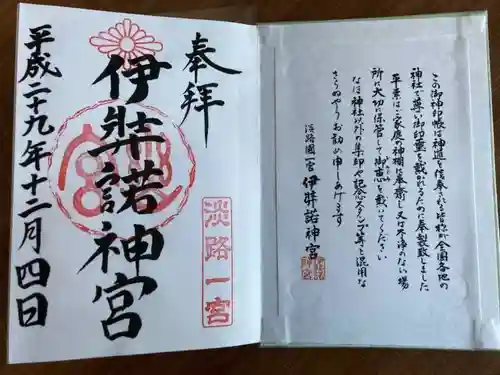 この御神印帳は神道を信奉される皆様が全国各地の
神社で尊い御印璽を戴かれるために奉製致しました
平素はご家庭の神棚に奉斎し又は不浄のない場
所に大切に保管して御恵を戴いてください
なほ神社以外の集印や記念スタンプ等と混用な
さらぬやうお勧め申しあげます
淡路國一宮 伊弉諾神宮
奉拝
淡路一宮
伊弉諾神宮
平成二十九年十二月四日